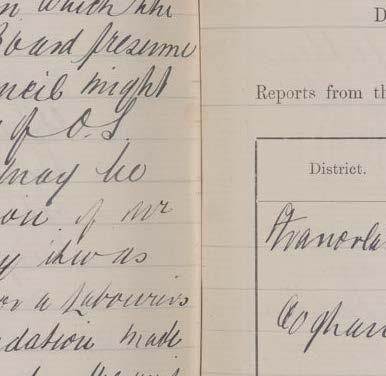 which the
Board presume
ncil might
of O.S.
may be
ion of Mr
y it was
or a Labourers
dation made
D
Reports from th
District.
Stranorla
Coghan